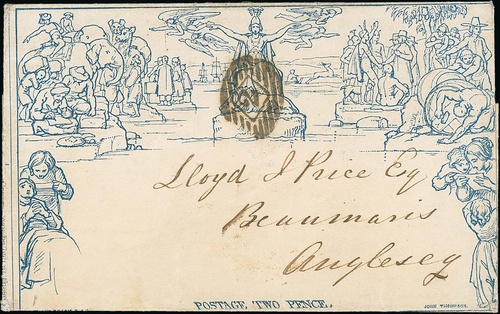 Lloyd J Price Esq
Beaumaris
Anglesey
POSTAGE TWO PENCE.
JOHN THOMPSON.